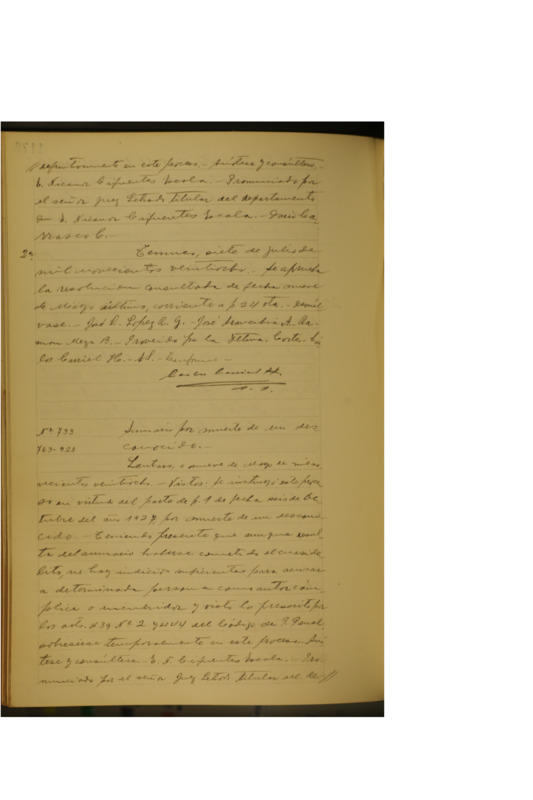 // definitivamente en este proceso.- Anótese y consúltese.-
E. Nicanor Cifuentes Escala.- Pronunciado por
el señor Juez Letrado titular del departamento
don E. Nicanor Cifuentes Escala.- Darío Ca
rrasco C.-
2ª Temuco, siete de julio de
mil novecientos veintiocho.- Se aprueba
la resolución consultada de fecha nueve
de Mayo último, corriente a f. 24 vta.- Devuél
vase.- José D. López A. G.- José Aravena A. Ra
món Meza B.- Proveido por la Iltma. Corte.- Car
los Curriel H.- S.S.- Conforme.-
Nº 733 Sumario por muerte de un des
763-928 conocido.-
Lautaro, nueve de Mayo de mil no
vecientos veintiocho.- Vistos: Se instruyó este proce
so en virtud del parte de f. 1 de fecha seis de Oc
tubre del año 1927 por muerte de un descono
cido.- Teniendo presente que aunque resul
ta del sumario haberse cometido el cuasi de
lito, no hay indicios suficientes para acusar
a determinada persona como autor cóm
plice o encubridor y visto lo prescrito por
los arts. 439 Nº 2 y 444 del Código de P. Penal,
sobreséese temporalmente en este proceso. Anó
tese y consúltese.- E. N. Cifuentes Escala.- Pro
nunciado por el señor Juez Letrado titular del de//